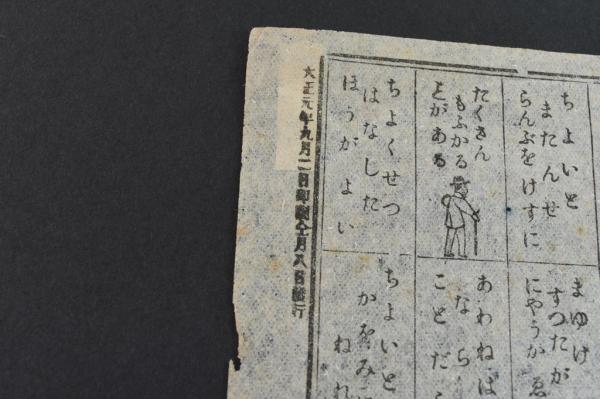 ちよいと
またんせ
らんぷをけすに
たくさん
もふかる
とがある
ちよくせつ
はなした
ほうがよい
まゆけ
すつたが
にやうか
あわねは
なら
ことだ
ちよいと
かをみ
ねれ
大正元年九月二日印刷仝月八日發行